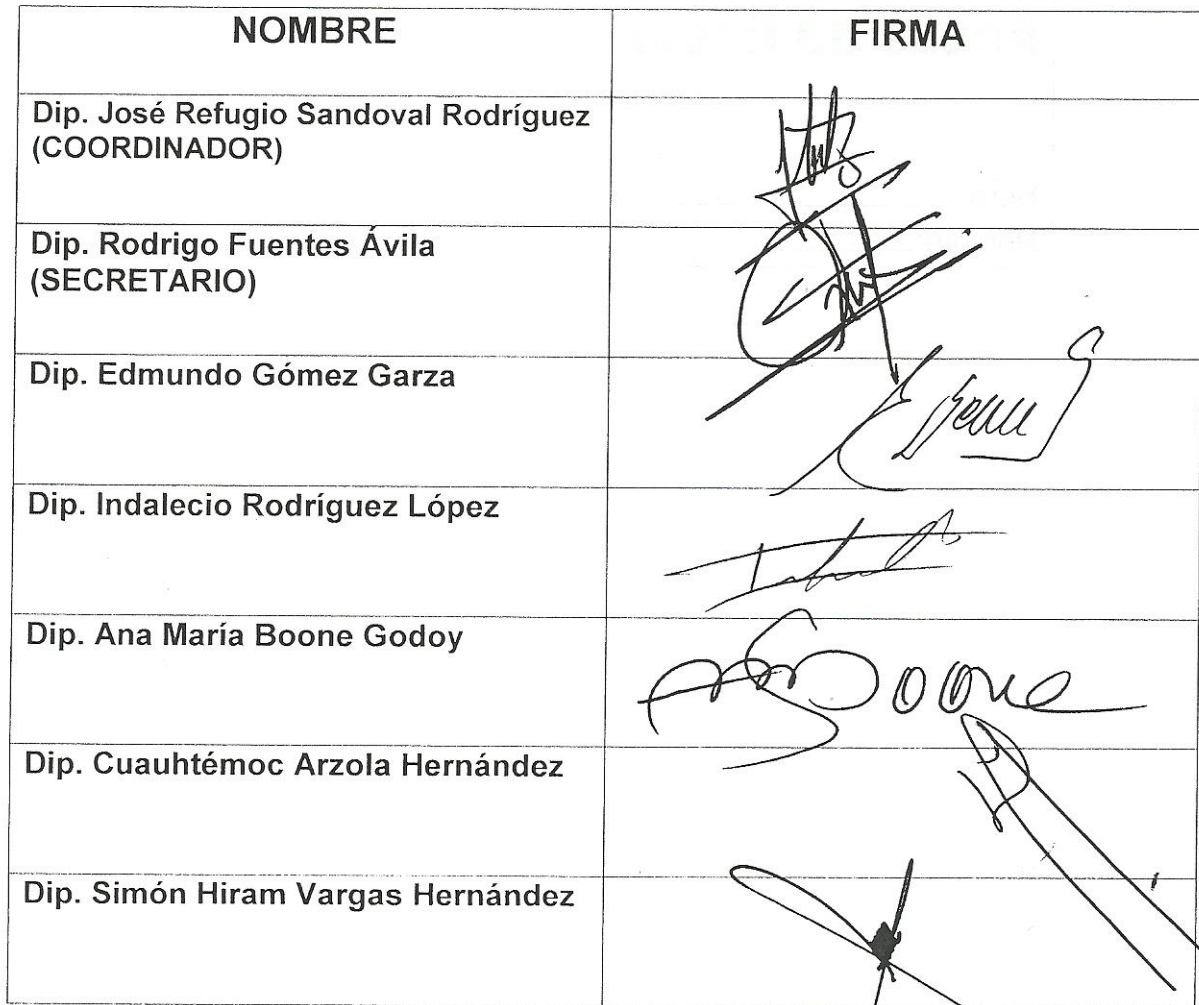 NOMBRE FIRMA
Dip. José Refugio Sandoval Rodríguez
(COORDINADOR)
Dip. Rodrigo Fuentes Ávila
(SECRETARIO)
Dip. Edmundo Gómez Garza
Dip. Indalecio Rodríguez López
Dip. Ana María Boone Godoy
Boone
Dip. Cuauhtémoc Arzola Hernández
Dip. Simón Hiram Vargas Hernández